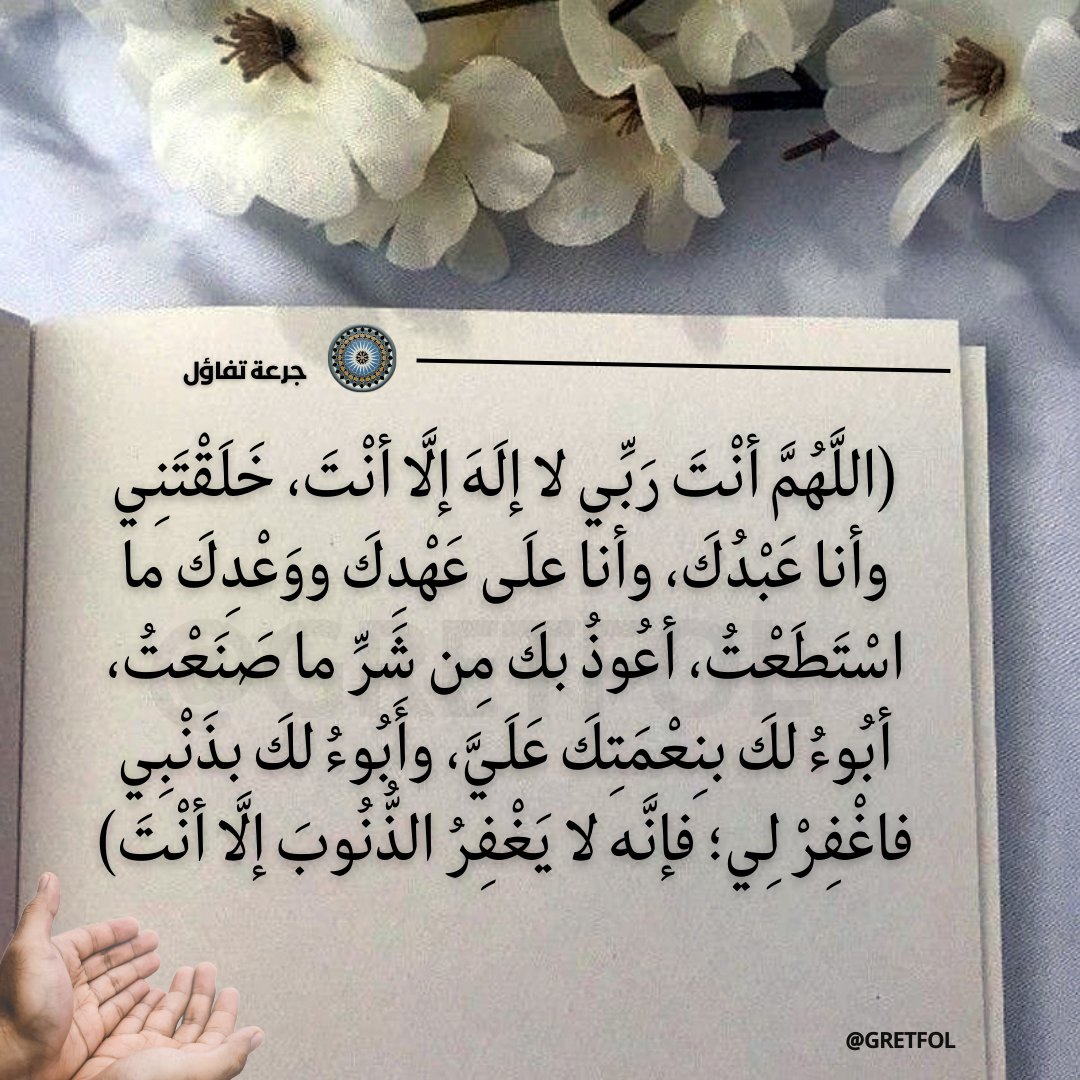 جرعة تفاؤل
(اللَّهُمَّ أنْتَ رَبِّي لا إلَهَ إلَّا أنْتَ، خَلَقْتَنِي
وأنا عَبْدُكَ، وأنا علَى عَهْدِكَ ووَعْدِكَ ما
اسْتَطَعْتُ، أعُوذُ بكَ مِن شَرِّ ما صَنَعْتُ،
أبُوءُ لكَ بنِعْمَتِكَ عَلَيَّ، وأَبُوءُ لكَ بذَنْبِي
فاغْفِرْ لِي؛ فإنَّه لا يَغْفِرُ الذُّنُوبَ إلَّا أنْتَ)
@GRETFOL